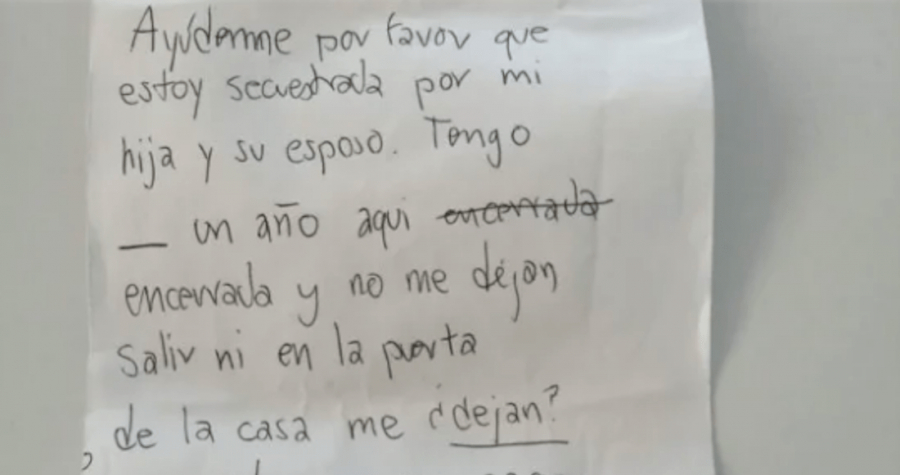 Ayúdenme por favor que
estoy secuestrada por mi
hija y su esposo. Tengo
__ un año aqui encerrada
encerrada y no me dejan
salir ni en la puerta
de la casa me ¿dejan?